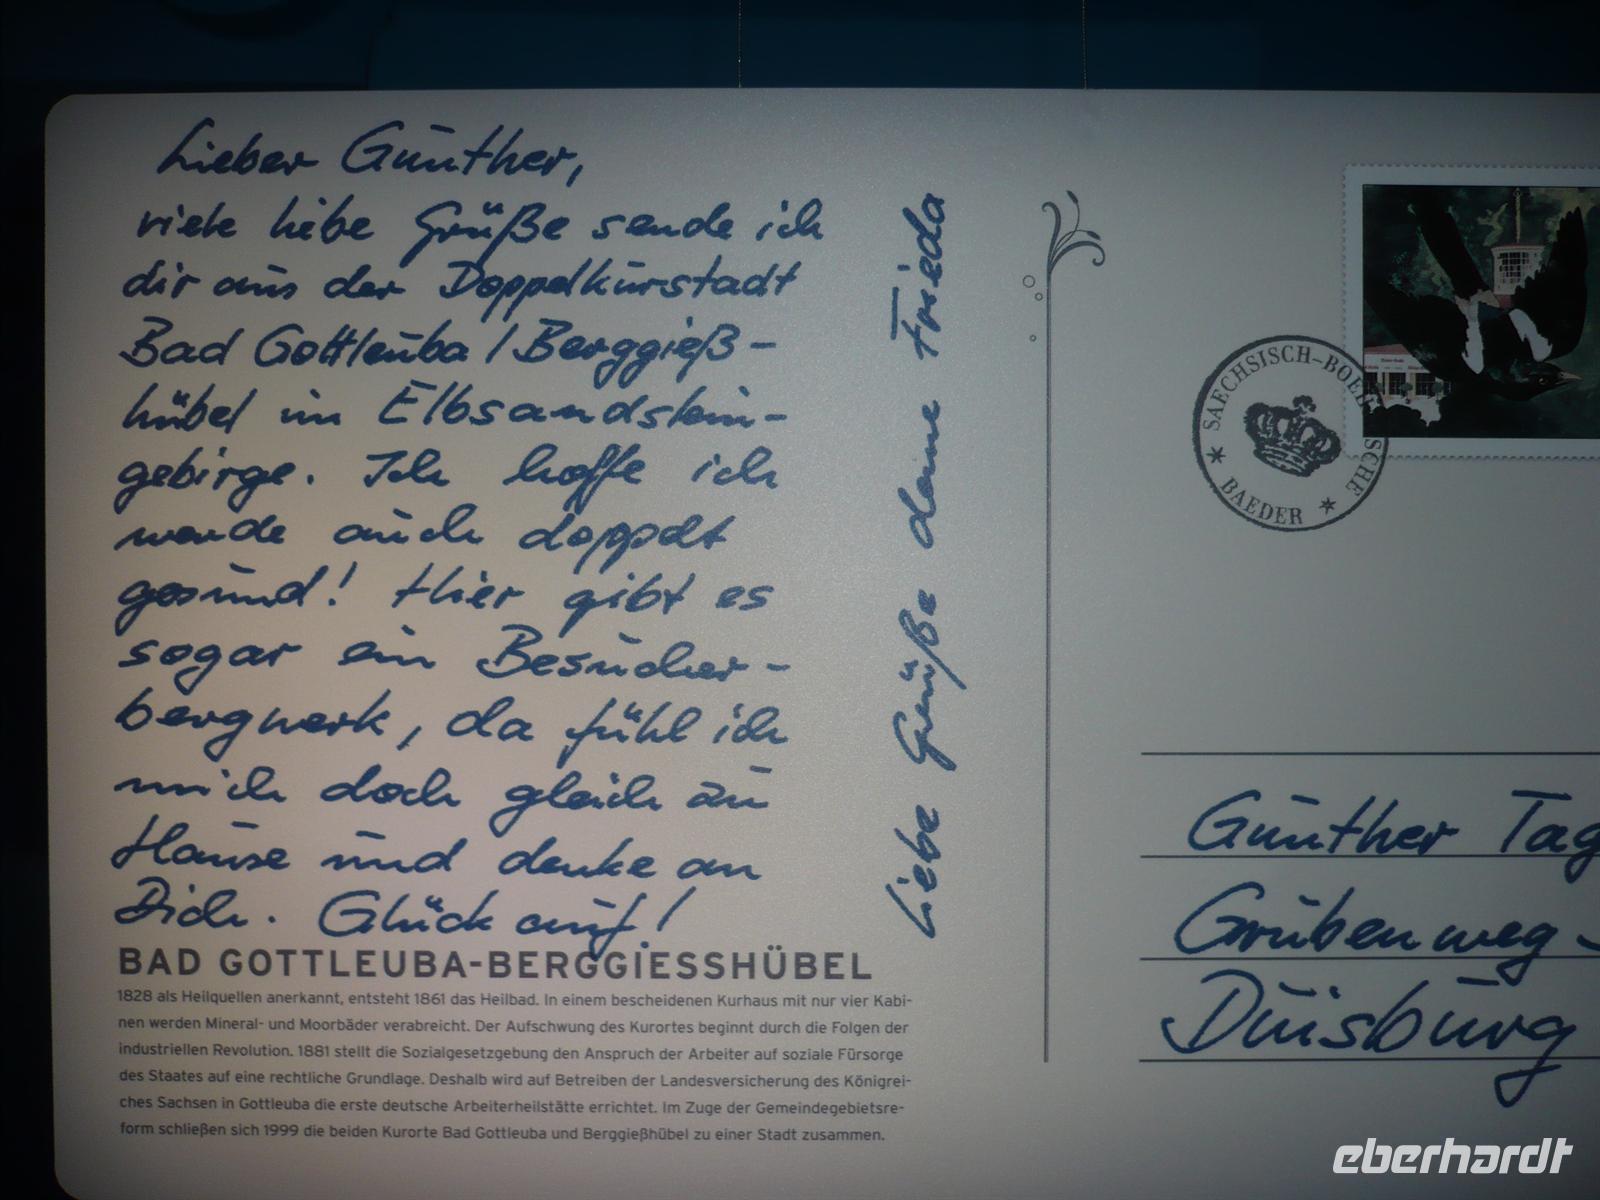 Lieber Günther,
viele liebe Grüße sende ich
dir aus der Doppelkurstadt
Bad Gottleuba / Berggieß-
hübel im Elbsandstein-
gebirge. Ich hoffe ich
werde auch doppelt
gesund! Hier gibt es
sogar ein Besucher-
bergwerk, da fühl ich
mich doch gleich zu
Hause und denke an
Dich. Glück auf!
Liebe Grüße deine Frieda
BAD GOTTLEUBA-BERGGIESSHÜBEL
1828 als Heilquellen anerkannt, entsteht 1861 das Heilbad. In einem bescheidenen Kurhaus mit nur vier Kabi-
nen werden Mineral- und Moorbäder verabreicht. Der Aufschwung des Kurortes beginnt durch die Folgen der
industriellen Revolution. 1881 stellt die Sozialgesetzgebung den Anspruch der Arbeiter auf soziale Fürsorge
des Staates auf eine rechtliche Grundlage. Deshalb wird auf Betreiben der Landesversicherung des Königrei-
ches Sachsen in Gottleuba die erste deutsche Arbeiterheilstätte errichtet. Im Zuge der Gemeindegebietsre-
form schließen sich 1999 die beiden Kurorte Bad Gottleuba und Berggießhübel zu einer Stadt zusammen.
SAECHSISCH-BOEHMISCHE
* BAEDER *
Günther Tag
Grubenweg -
Duisburg
eberhardt